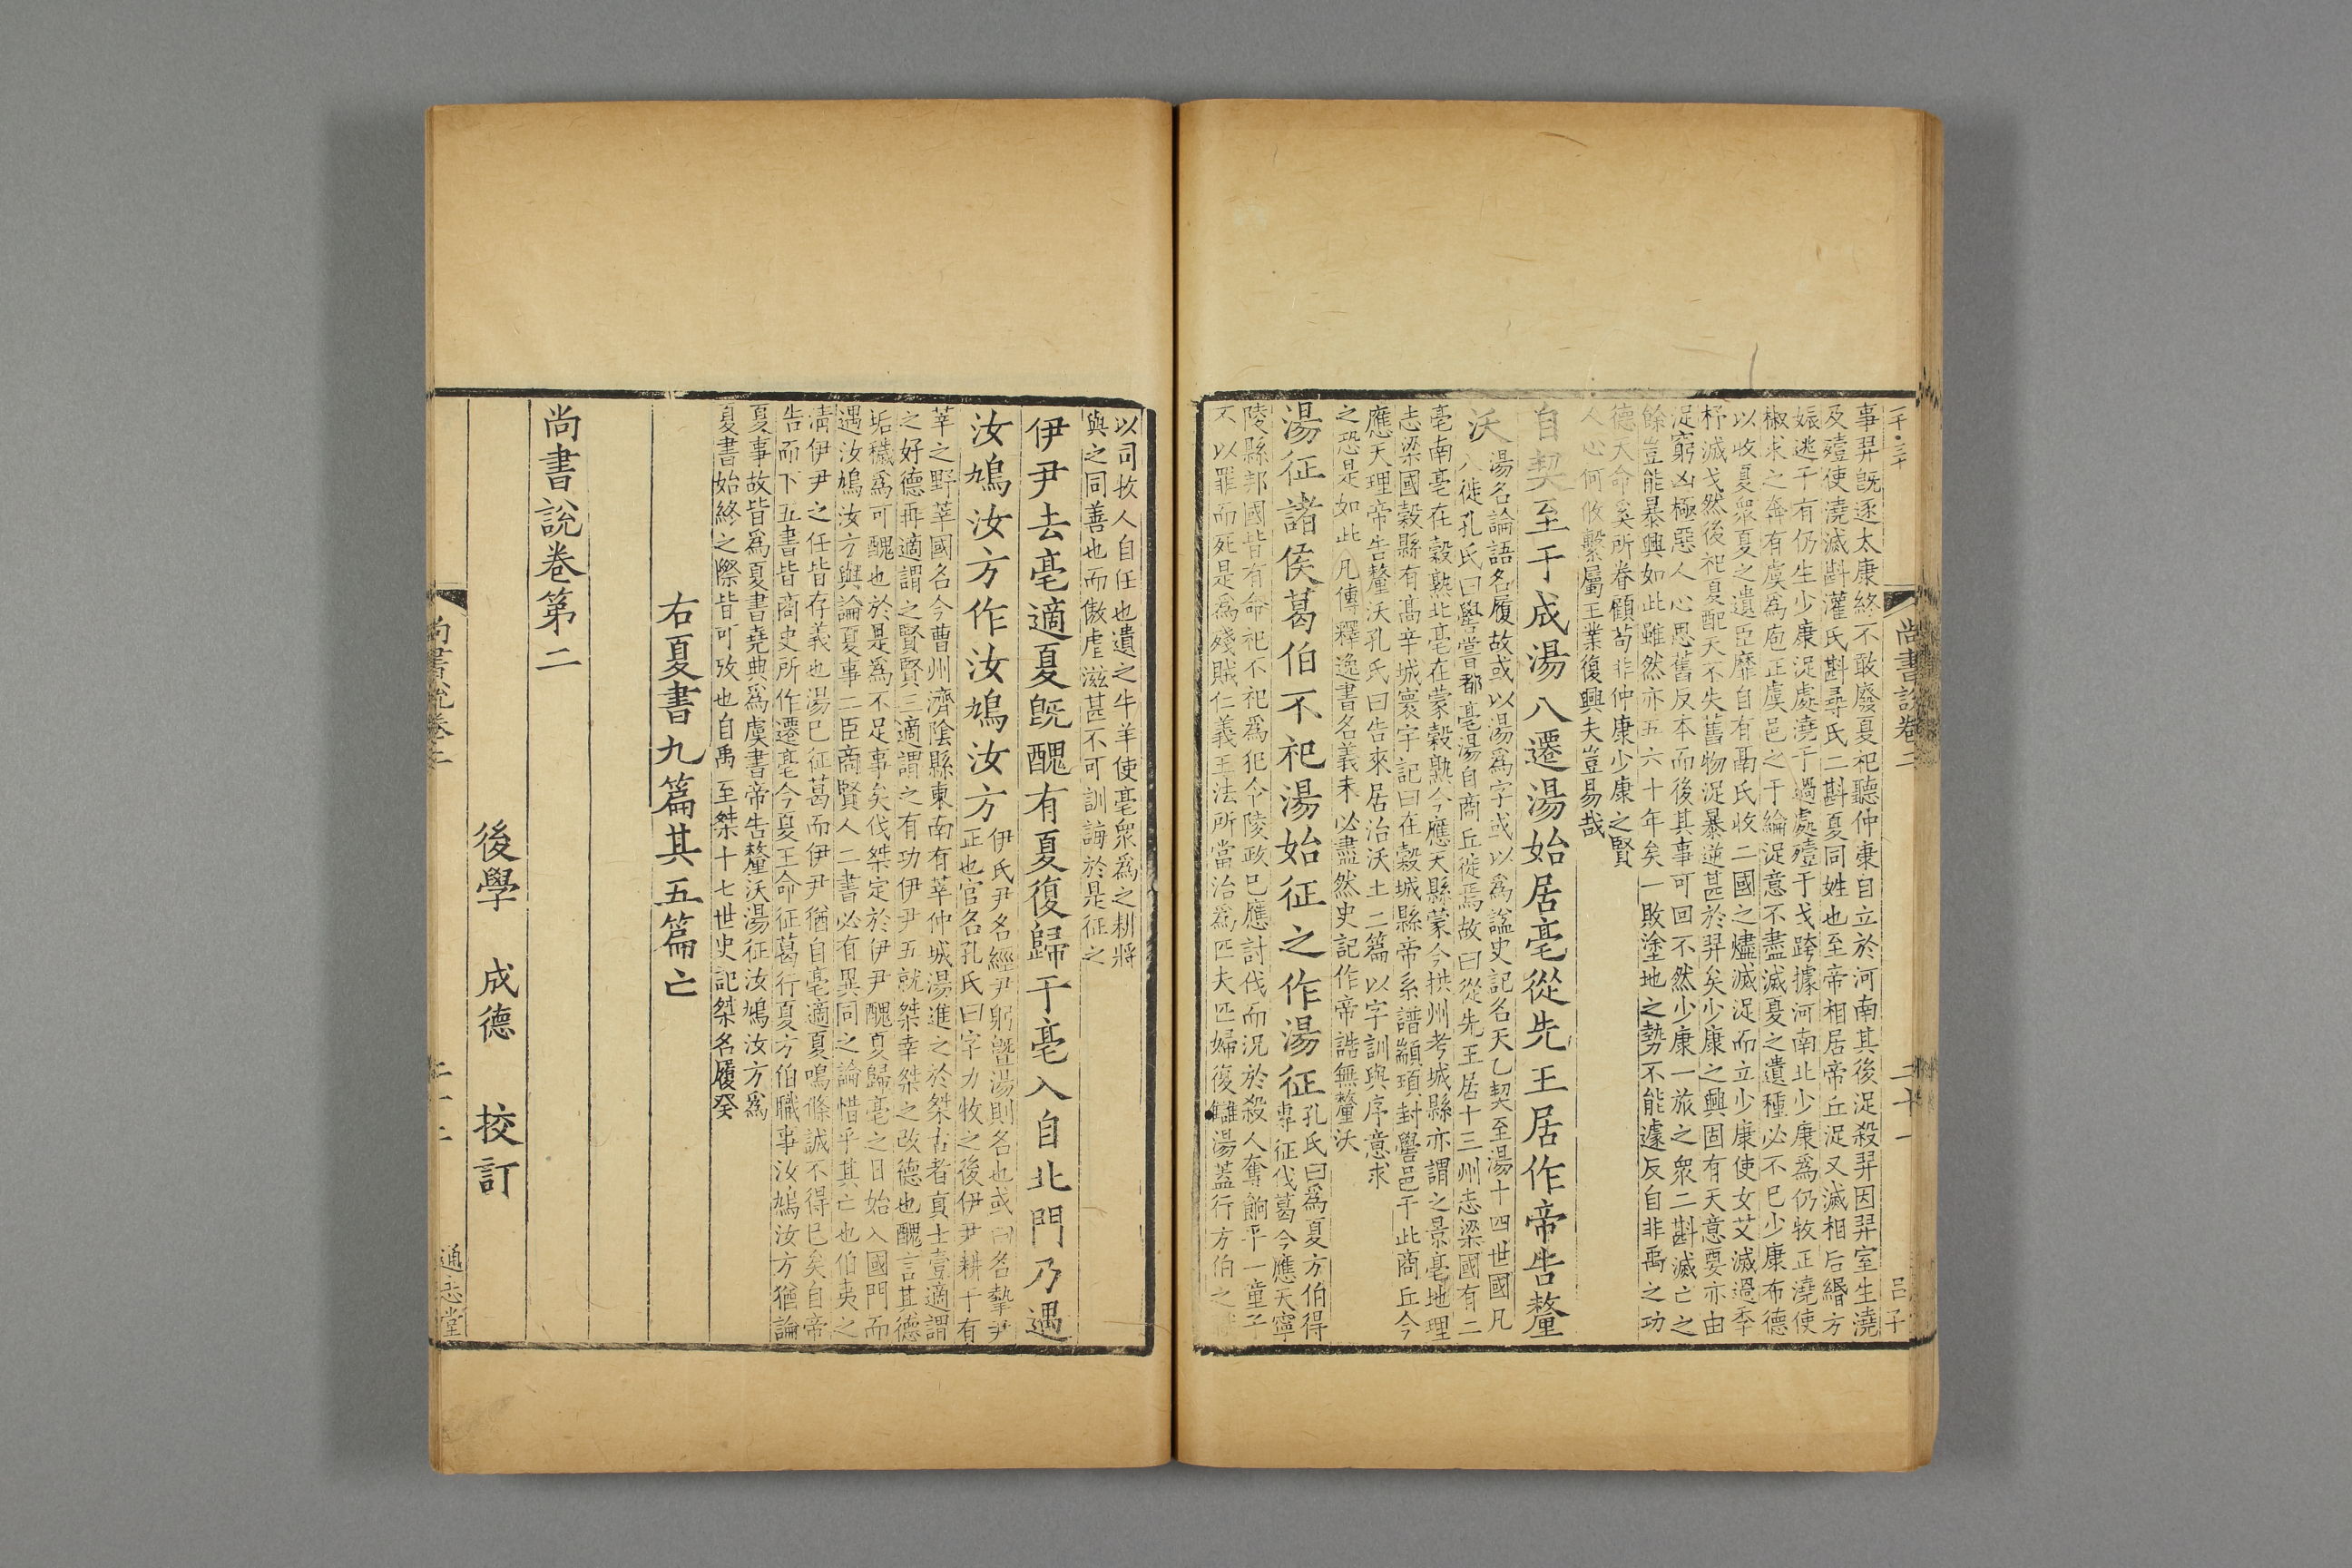 尚書說卷二
二十一
呂子
事羿旣逐太康終不敢廢夏祀聽仲康自立於河南其後浞殺羿因羿室生澆
及殪使澆滅斟灌氏斟尋氏二斟夏同姓也至帝相居帝丘浞又滅相后緡方
娠逃于有仍生少康浞處澆于過處殪于戈跨據河南北少康爲仍牧正澆使
椒求之奔有虞爲庖正虞邑之于綸浞意不盡滅夏之遺種必不已少康布德
以收夏衆夏之遺臣靡自有鬲氏收二國之燼滅浞而立少康使女艾滅過季
杼滅戈然後祀夏配天不失舊物浞暴逆甚於羿矣少康之興固有天意要亦由
浞窮凶極惡人心思舊反本而後其事可回不然少康一旅之衆二斟滅亡之
餘豈能暴興如此雖然亦五六十年矣一敗塗地之勢不能遽反自非禹之功
德天命矣所眷顧苟非仲康少康之賢
人心何攸繫屬王業復興夫豈易哉
自契至于成湯八遷湯始居亳從先王居作帝告釐
沃
湯名論語名履故或以湯爲字或以爲諡史記名天乙契至湯十四世國凡
八徙孔氏曰嚳嘗都亳湯自商丘徙焉故曰從先王居十三州志梁國有二
亳南亳在穀熟北亳在蒙穀熟今應天縣蒙今拱州考城縣亦謂之景亳地理
志梁國穀縣有高辛城寰宇記曰在穀城縣帝系譜顓頊封嚳邑于此商丘今
應天理帝告釐沃孔氏曰告來居治沃土二篇以字訓與序意求
之恐是如此凡傳釋逸書名義未必盡然史記作帝誥無釐沃
湯征諸侯葛伯不祀湯始征之作湯征
孔氏曰爲夏方伯得
專征伐葛今應天寧
陵縣邦國皆有命祀不祀爲犯令陵政已應討伐而況於殺人奪餉乎一童子
不以罪而死是爲殘賊仁義王法所當治爲匹夫匹婦復讎湯蓋行方伯之
以司牧人自任也遺之牛羊使亳衆爲之耕將
與之同善也而傲虐滋甚不可訓誨於是征之
伊尹去亳適夏旣醜有夏復歸于亳入自北門乃遇
汝鳩汝方作汝鳩汝方
伊氏尹名經尹躬曁湯則名也或曰名摯尹
正也官名孔氏曰字力牧之後伊尹耕于有
莘之野莘國名今曹州濟陰縣東南有莘仲城湯進之於桀古者貢士壹適謂
之好德再適謂之賢賢三適謂之有功伊尹五就桀幸桀之改德也醜言其德
垢穢爲可醜也於是爲不足事矣伐桀定於伊尹醜夏歸亳之日始入國門而
遇汝鳩汝方與論夏事二臣商賢人二書必有異同之論惜乎其亡也伯夷之
淸伊尹之任皆存義也湯已征葛而伊尹猶自亳適夏鳴條誠不得已矣自帝
告而下五書皆商史所作遷亳今夏王命征葛行夏方伯職事汝鳩汝方猶論
夏事故皆爲夏書堯典爲虞書帝告釐沃湯征汝鳩汝方爲
夏書始終之際皆可攷也自禹至桀十七世史記桀名履癸
右夏書九篇其五篇亡
尚書說卷第二
後學 成德 挍訂
尚書說卷二
通志堂